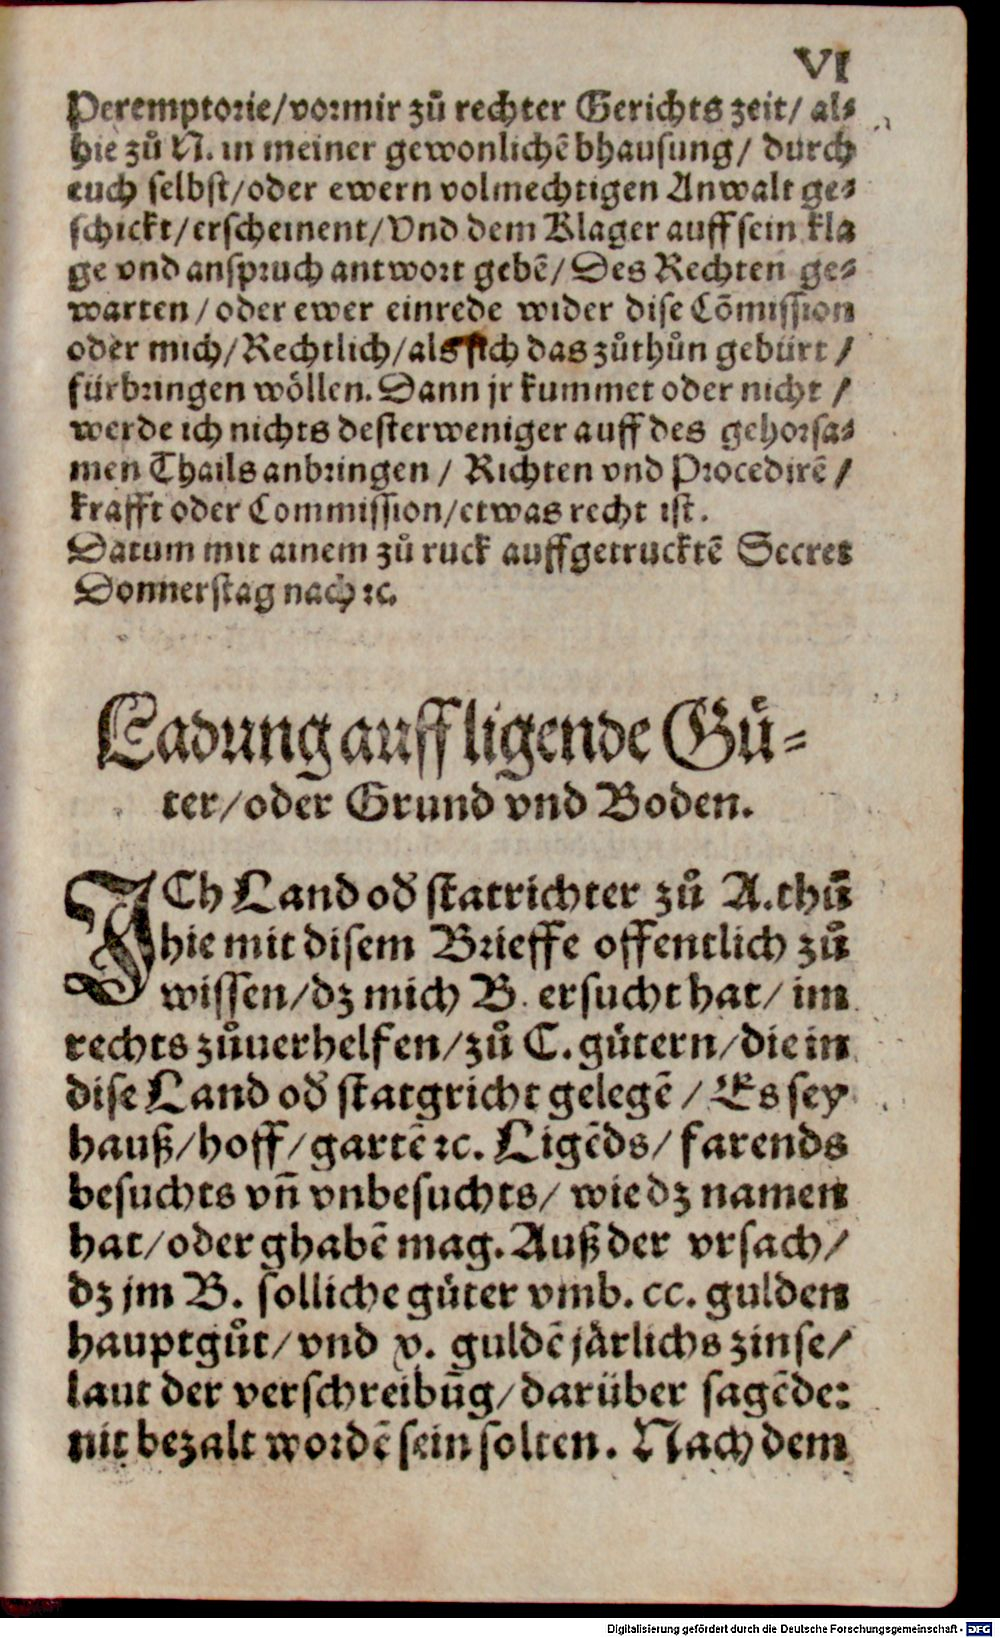 VI
Peremptorie/vor mir zů rechter Gerichts zeit/ al⸗
hie zů N. in meiner gewonlichē bhausung/ durch
euch selbst/oder ewern volmechtigen Anwalt ge⸗
schickt/erscheinent/Vnd dem Klager auff sein kla
ge vnd anspruch antwort gebē/Des Rechten ge⸗
warten/oder ewer einrede wider dise Cōmission
oder mich/Rechtlich/als sich das zůthůn gebürt/
fürbringen wöllen. Dann jr kummet oder nicht/
werde ich nichts desterweniger auff des gehorsa⸗
men Thails anbringen/ Richten vnd Procedirē/
krafft oder Commission/etwas recht ist.
Datum mit ainem zů ruck auffgetrucktē Secret
Donnerstag nach ꝛc.
Ladung auff ligende Gů⸗
ter/oder Grund vnd Boden.
ICh Land od̄ statrichter zů A. thů
hie mit disem Brieffe offentlich zů
wissen/dz mich B. ersucht hat/ im
rechts zůuerhelfen/zů C. gůtern/die in
dise Land od̄ statgricht gelegē/ Es sey
hauß/hoff/gartē ꝛc. Ligēds/ farends
besuchts vn̄ vnbesuchts/ wie dz namen
hat/oder ghabē mag. Auß der vrsach/
dz jm B. solliche gůter vmb. cc. gulden
hauptgůt/vnd v. guldē järlichs zinse/
laut der verschreibūg/darüber sagēde:
nit bezalt wordē sein solten. Nach dem
Digitalisierung gefördert durch die Deutsche Forschungsgemeinschaft - DFG